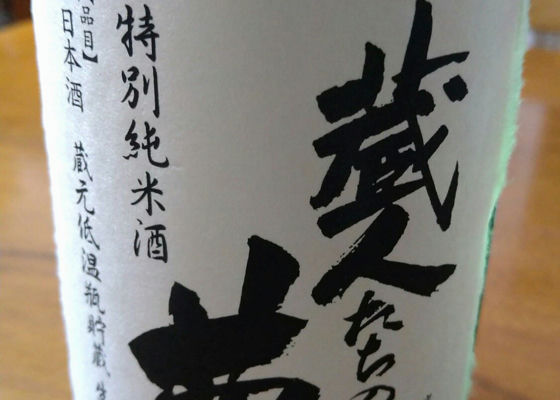 蔵人たちの
特別純米酒
品目】日本酒 蔵元低温瓶貯蔵